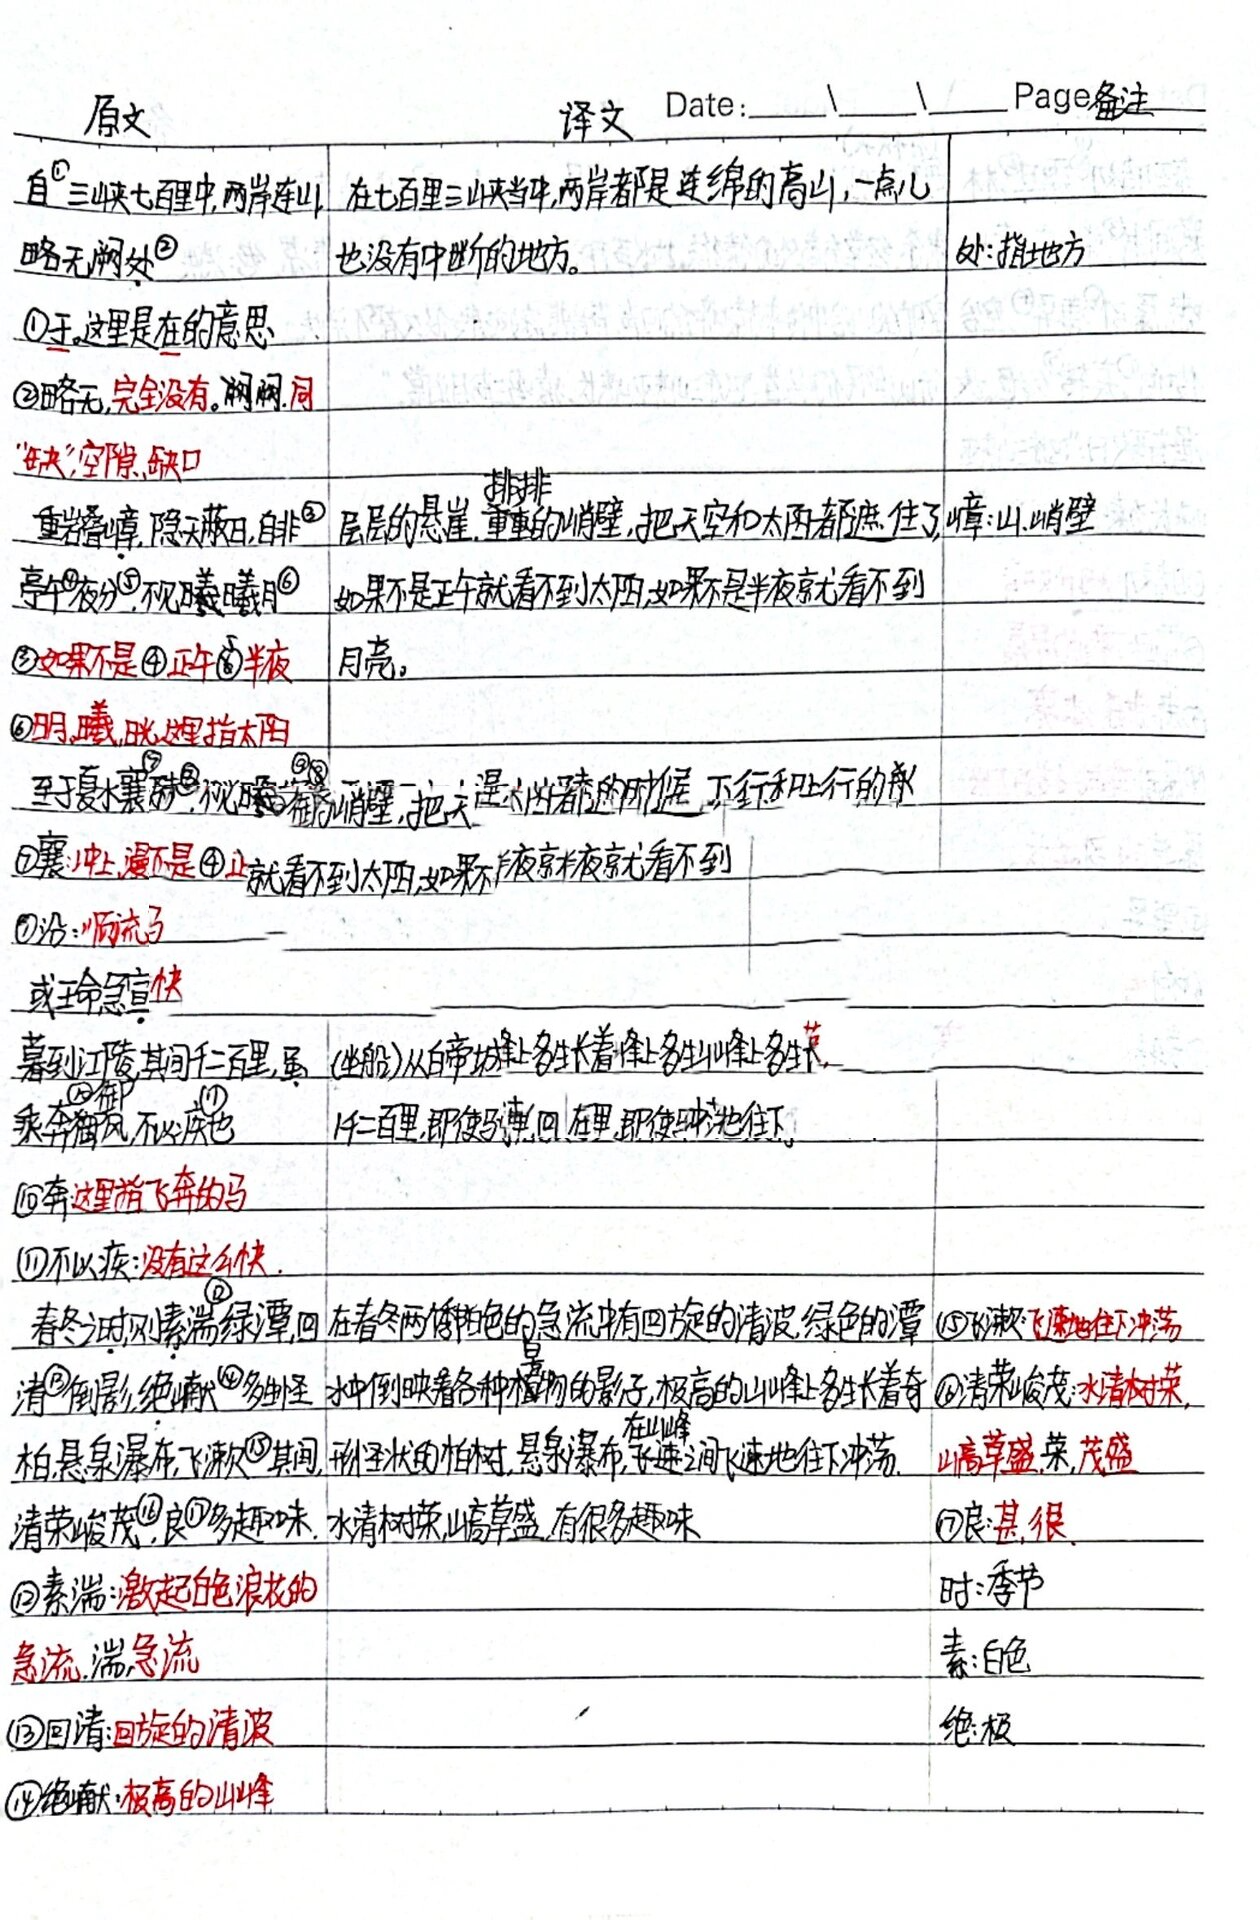 原文 译文 Date: \ \ Page备注
自①三峡七百里中,两岸连山, 在七百里三峡当中,两岸都是连绵的高山,一点儿
略无阙处② 也没有中断的地方。 处:指地方
①于。这里是在的意思
②略无,完全没有。阙 同
“缺”,空隙、缺口
排排
重岩叠嶂,隐天蔽日,自非③ 层层的悬崖,的峭壁,把天空和太阳都遮住了, 嶂:山峭壁
亭午④夜分⑤,不见曦月⑥ 如果不是正午就看不到太阳,如果不是半夜就看不到
③如果不是④正午⑤半夜 月亮。
⑥ 曦, 这里指太阳
至于夏水襄 峭壁,把 的时候,下行和上行的
⑦襄:冲上,漫不是④ 就看不到太阳,如果不 夜就看不到
沿:顺流
或王命急宣快
暮到江陵,其间千二百里,虽 (坐船)从白帝 峰上多生长着峰上多生 峰上多生
乘奔御风,不以疾⑪也 千二百里,即使 里,即使 地往下
⑩奔:这里指飞奔的马
⑪不以疾:没有这么快.
春冬之时,则素湍⑫绿潭,回 在春冬两 白色的急流中有回旋的清波,绿色的潭 ⑮飞漱:飞速地往下冲荡
清⑬倒影,绝巘⑭多生怪 水中倒映着各种景物的影子,极高的山峰上多生长着奇 ⑯清荣峻茂:水清树荣,
在山峰
柏,悬泉瀑布,飞漱⑮其间, 形怪状的柏树,悬泉瀑布,之间飞速地往下冲荡. 山高草盛.荣,茂盛
清荣峻茂⑯,良⑰多趣味. 水清树荣,山高草盛,有很多趣味 ⑰良:甚,很.
⑫素湍:激起白色浪花的 时:季节
急流.湍,急流 素:白色
⑬回清:回旋的清波 绝:极
⑭绝巘:极高的山峰